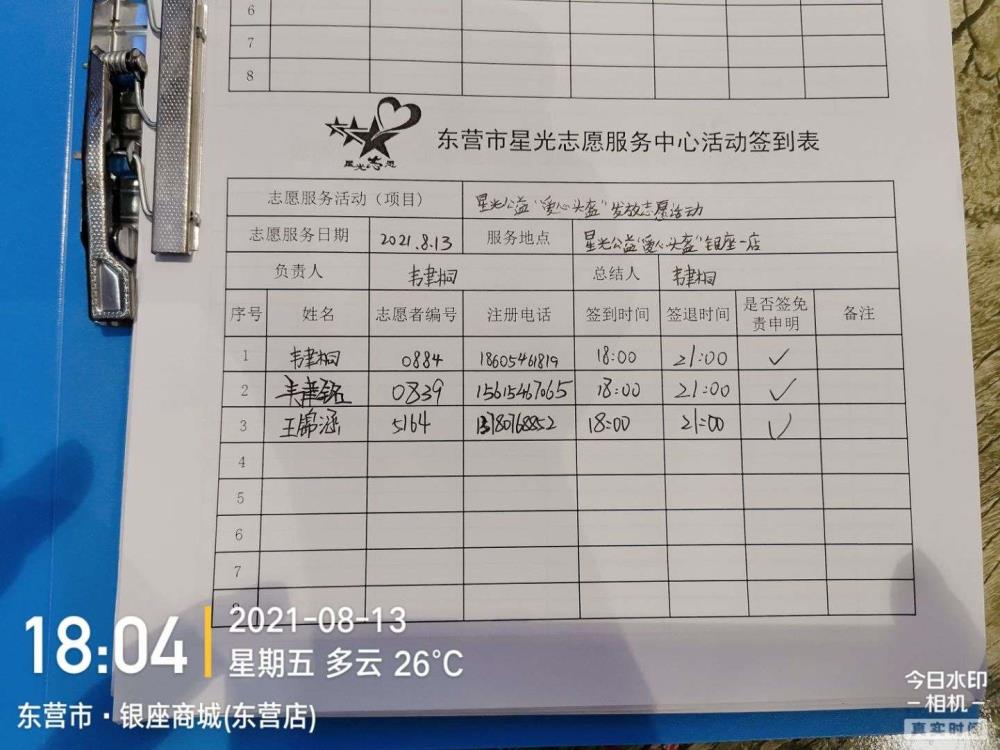 6
7
8
星光志愿
东营市星光志愿服务中心活动签到表
志愿服务活动（项目） 星光公益“爱心头盔”发放志愿活动
志愿服务日期 2021.8.13 服务地点 星光公益“爱心头盔”银座一店
负责人 韦聿桐 总结人 韦聿桐
序号 姓名 志愿者编号 注册电话 签到时间 签退时间 是否签免责申明 备注
1 韦聿桐 0884 18605461819 18:00 21:00 ✓
2 0839 15615467065 18:00 21:00 ✓
3 王锦涵 5164 13780768852 18:00 21:00 ✓
4
5
6
7
8
18:04
2021-08-13
星期五 多云 26°C
东营市·银座商城(东营店)
今日水印
-相机-
真实时间